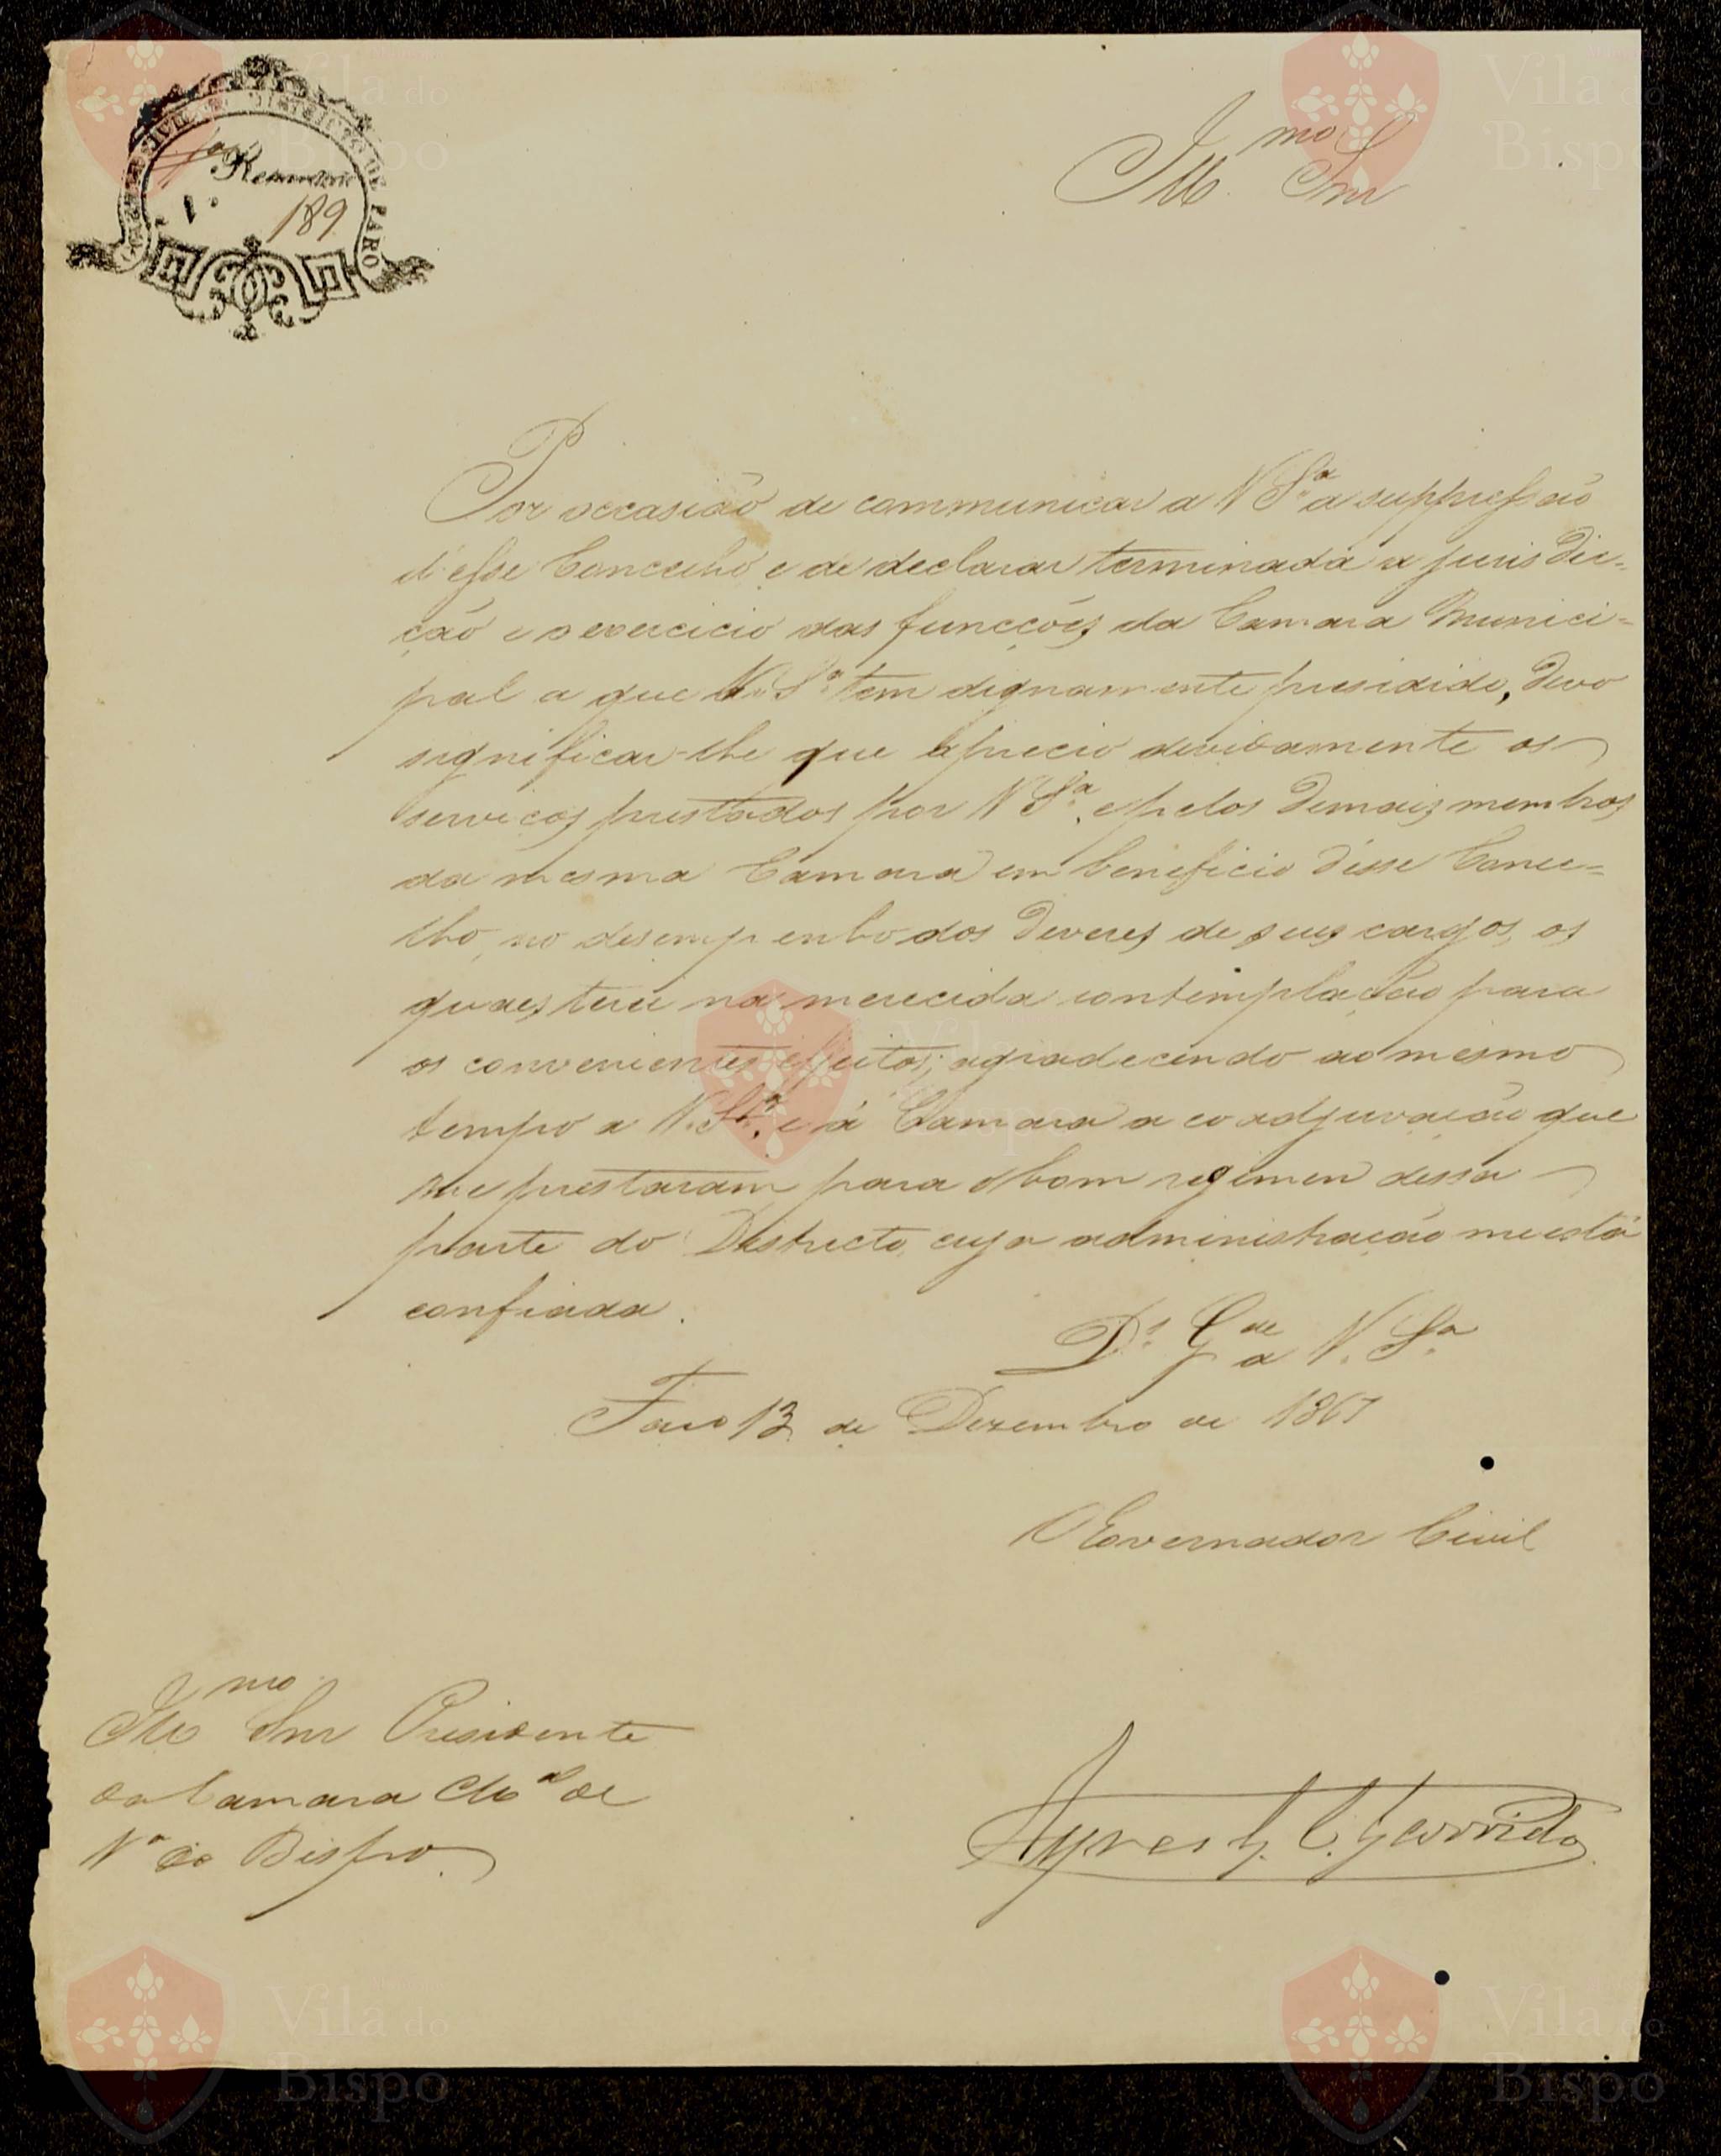 GOVERNO CIVIL DO DISTRICTO DE FARO
1ª Repartição
Nº 189
Illmo Snr
Por occasião de communicar a V Sª a suppressão
d'esse Concelho e de declarar terminada a jurisdic-
ção e o exercicio das funcções da Camara Munici=
pal a que V. Sª tem dignamente presidido, devo
significar-lhe que aprecio devidamente os
serviços prestados por V Sª, e pelos demais membros
da mesma Camara em beneficio d'esse Conce=
lho, no desempenho dos deveres de seus cargos, os
quaes terei na merecida contemplação para
os convenientes effeitos; agradecendo ao mesmo
tempo a V. Sª, e á Camara a coadjuvação que
me prestaram para o bom regimen dessa
parte do Districto, cuja administração me está
confiada.
Ds Gde a V. Sª
Faro 13 de Dezembro de 1867
O Governador Civil
Illmo Snr Presidente
da Camara Mal de
Vª do Bispo.
Ayres G. C. Garrido
Vila do
Bispo